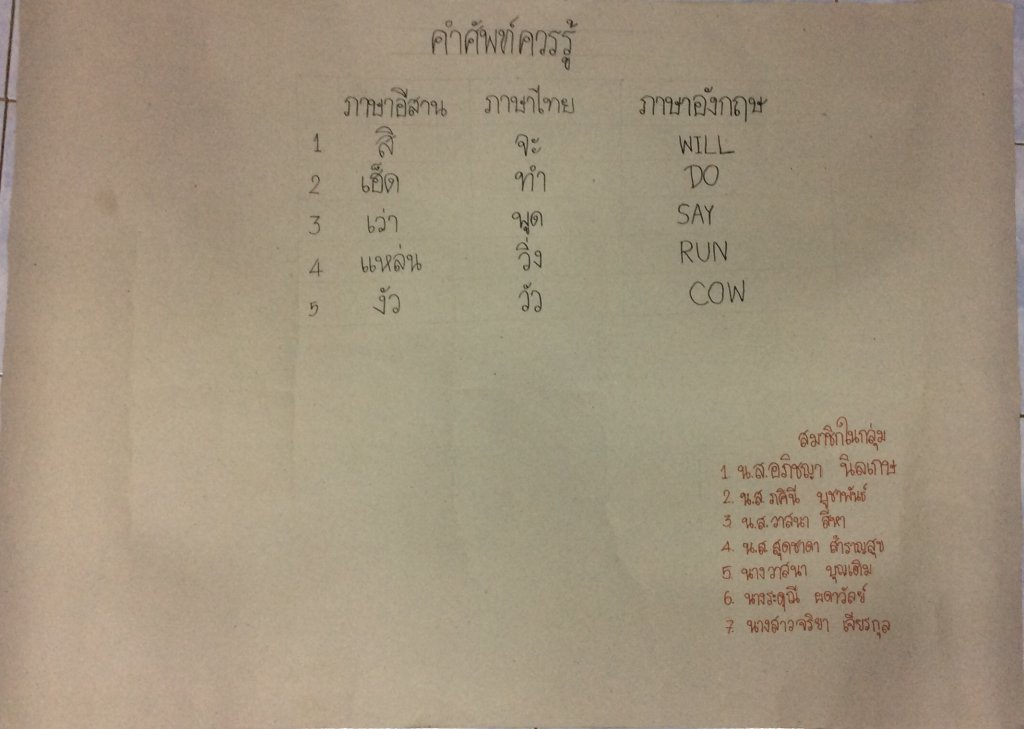 คำศัพท์ควรรู้
ภาษาอีสาน ภาษาไทย ภาษาอังกฤษ
1 สิ จะ WILL
2 เฮ็ด ทำ DO
3 เว่า พูด SAY
4 แหล่น วิ่ง RUN
5 งัว วัว COW
สมาชิกในกลุ่ม
1 น.ส.อภิชญา นิลเกษ
2. น.ส. ภคินี บูชาพันธ์
3 น.ส.วาสนา สีหา
4. น.ส. สุดชาดา สำราญสุข
5. นางวาสนา บุญเติม
6. ผดาวัลย์
7. นางสาวจริยา เสียรกุล